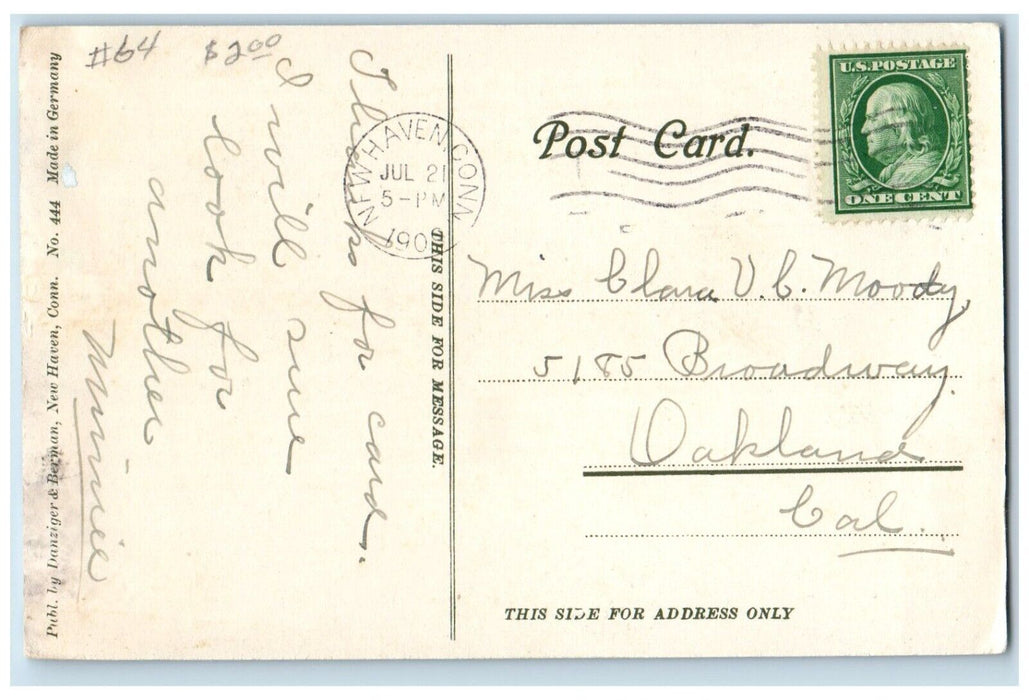 #64 $2.00
Thanks for card.
I will sure
look for
another
Minnie
Publ. by Danziger & Berman, New Haven, Conn. No. 444 Made in Germany
THIS SIDE FOR MESSAGE.
NEW HAVEN, CONN
JUL 21
5-PM
Post Card.
U.S. POSTAGE
ONE CENT
Miss Clara V. C. Moody,
5185 Broadway.
Oakland
Cal.
THIS SIDE FOR ADDRESS ONLY